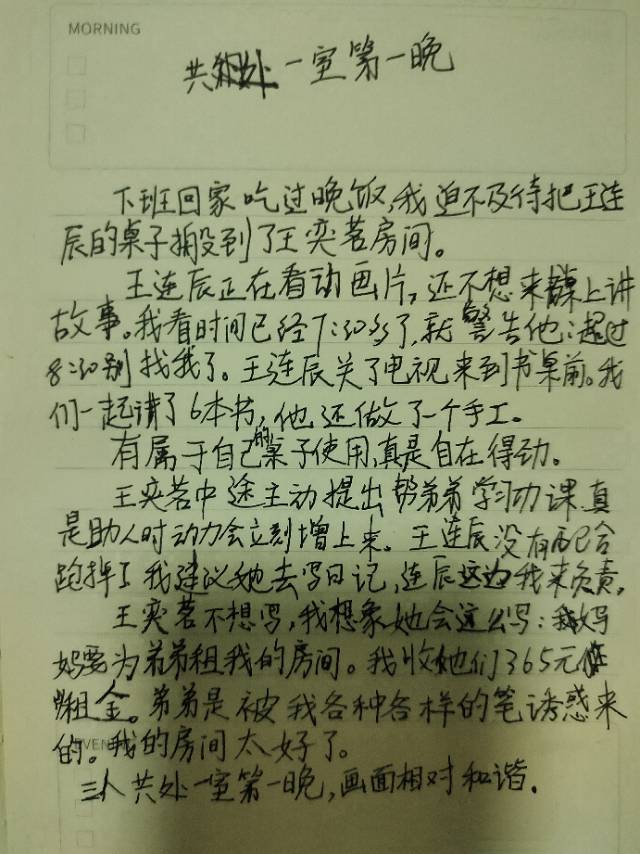 MORNING
共处一室第一晚
下班回家吃过晚饭,我迫不及待把王连
辰的桌子搬到了王奕茗房间。
王连辰正在看动画片,还不想来桌上讲
故事。我看时间已经7:30多了,就警告他:超过
8:30别找我了。王连辰关了电视来到书桌前。我
们一起讲了6本书,他还做了一个手工。
有属于自己的桌子使用,真是自在得劲。
王奕茗中途主动提出帮弟弟学习功课,真
是助人时动力会立刻增上来。王连辰没有配合
跑掉了我建议她去写日记,连辰这边我来负责。
王奕茗不想写,我想象她会这么写:我妈
妈要为弟弟租我的房间。我收她们365元
租金。弟弟是被我各种各样的笔诱惑来
的。我的房间太好了。
EVEN
三人共处一室第一晚,画面相对和谐.